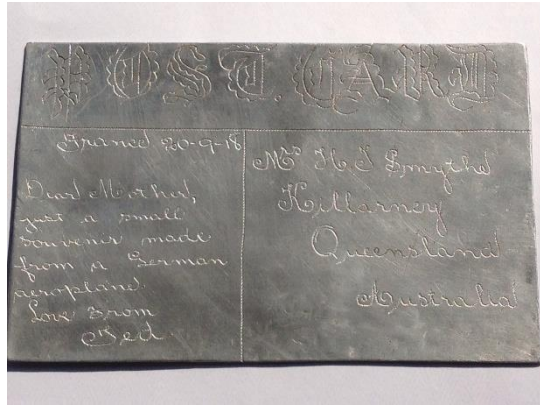 POST. CARD
France 20-9-18
Dear Mother,
just a small
souvenir made
from a German
aeroplane.
Love from
Ted.
Mrs H. J Smythe
Killarney
Queensland
Australia